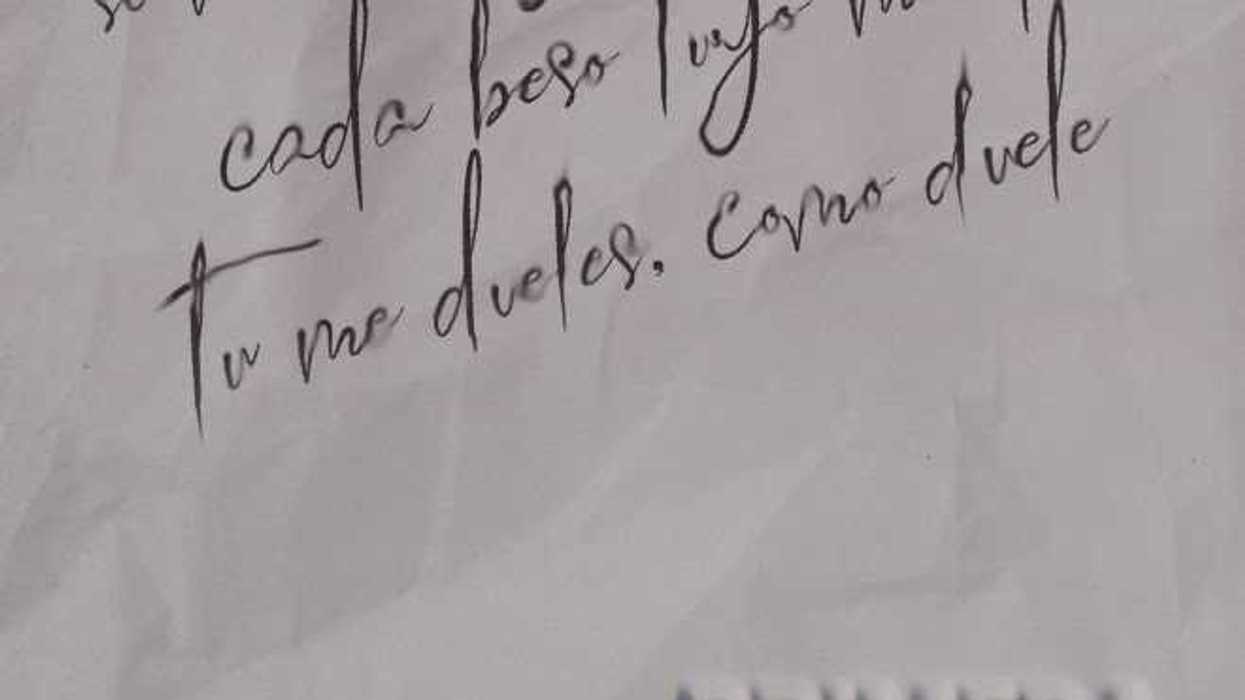 cada beso tuyo
Tu me dueles. Como duele